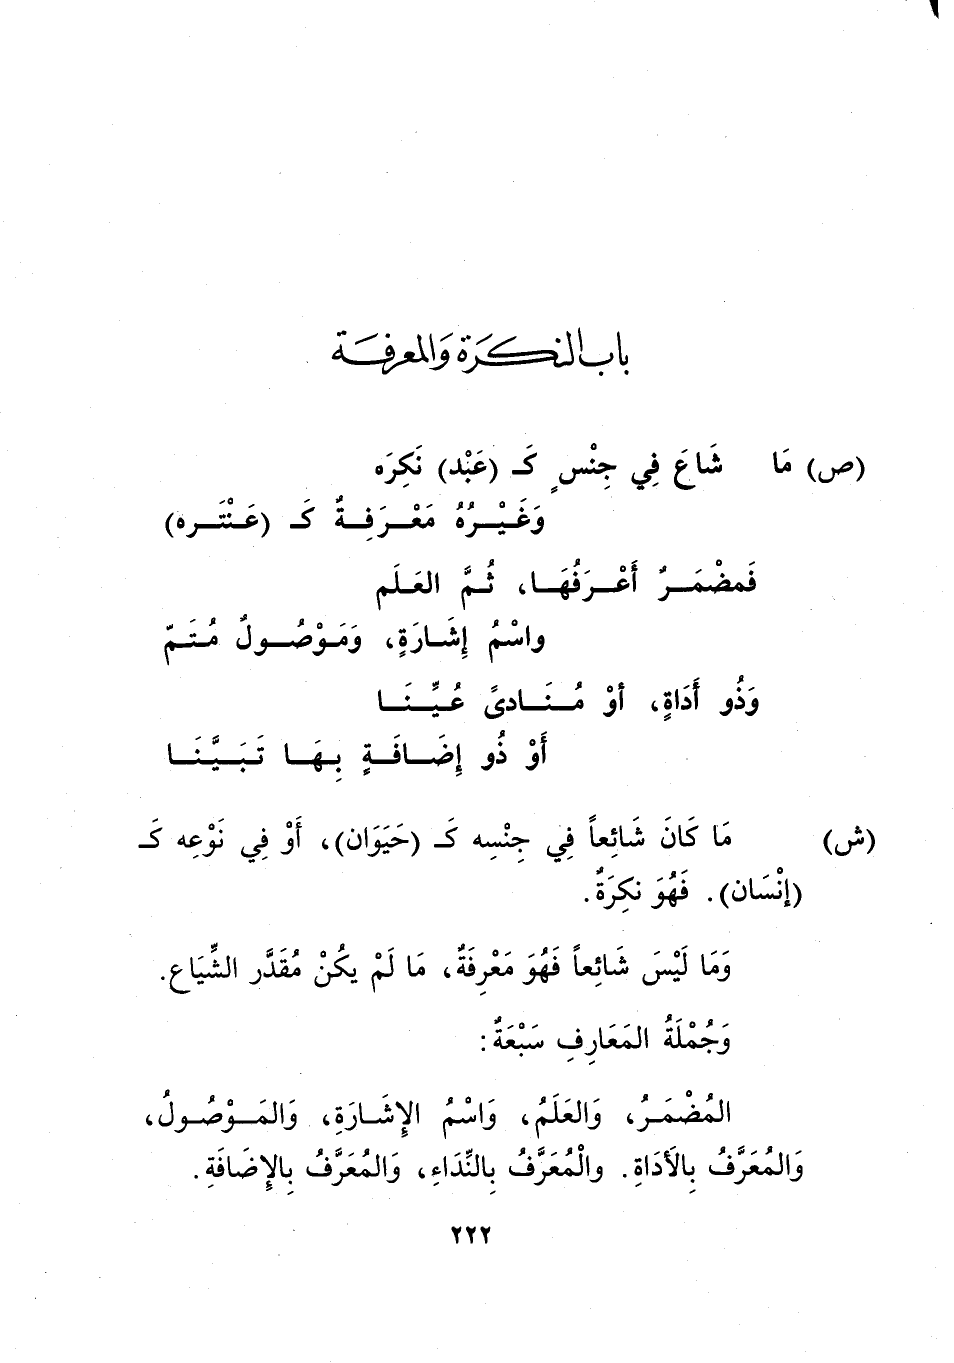 باب النكرة والمعرفة
(ص) مَا شَاعَ فِي جِنْسٍ كَـ (عَبْد) نَكِرَه
وَغَيْرُهُ مَعْرَفِةٌ كَـ (عَنْتَره)
فَمضْمَرٌ أَعْرَفُهَا، ثُمَّ العَلَم
واسْمُ إِشَارَةٍ، وَمَوْصُولٌ مُتَمّ
وَذُو أَدَاةٍ، أوْ مُنَادىً عُيِّنَا
أَوْ ذُو إِضَافَةٍ بِهَا تَبَيَّنَا
(ش) مَا كَانَ شَائِعاً فِي جِنْسِه كَـ (حَيَوَان)، أَوْ فِي نَوْعِه كَـ
(إنْسَان). فَهُوَ نكِرَةٌ.
وَمَا لَيْسَ شَائِعاً فَهُوَ مَعْرِفَةٌ، مَا لَمْ يكُنْ مُقَدَّر الشِّيَاع.
وَجُمْلَةُ المَعَارِفِ سَبْعَةٌ:
المُضْمَرُ، وَالعَلَمُ، وَاسْمُ الإِشَارَةِ، وَالمَوْصُولُ،
وَالمُعَرَّفُ بِالأَدَاةِ. والْمُعَرَّفُ بِالنِّدَاءِ، وَالمُعَرَّفُ بِالإِضَافَةِ.
٢٢٢